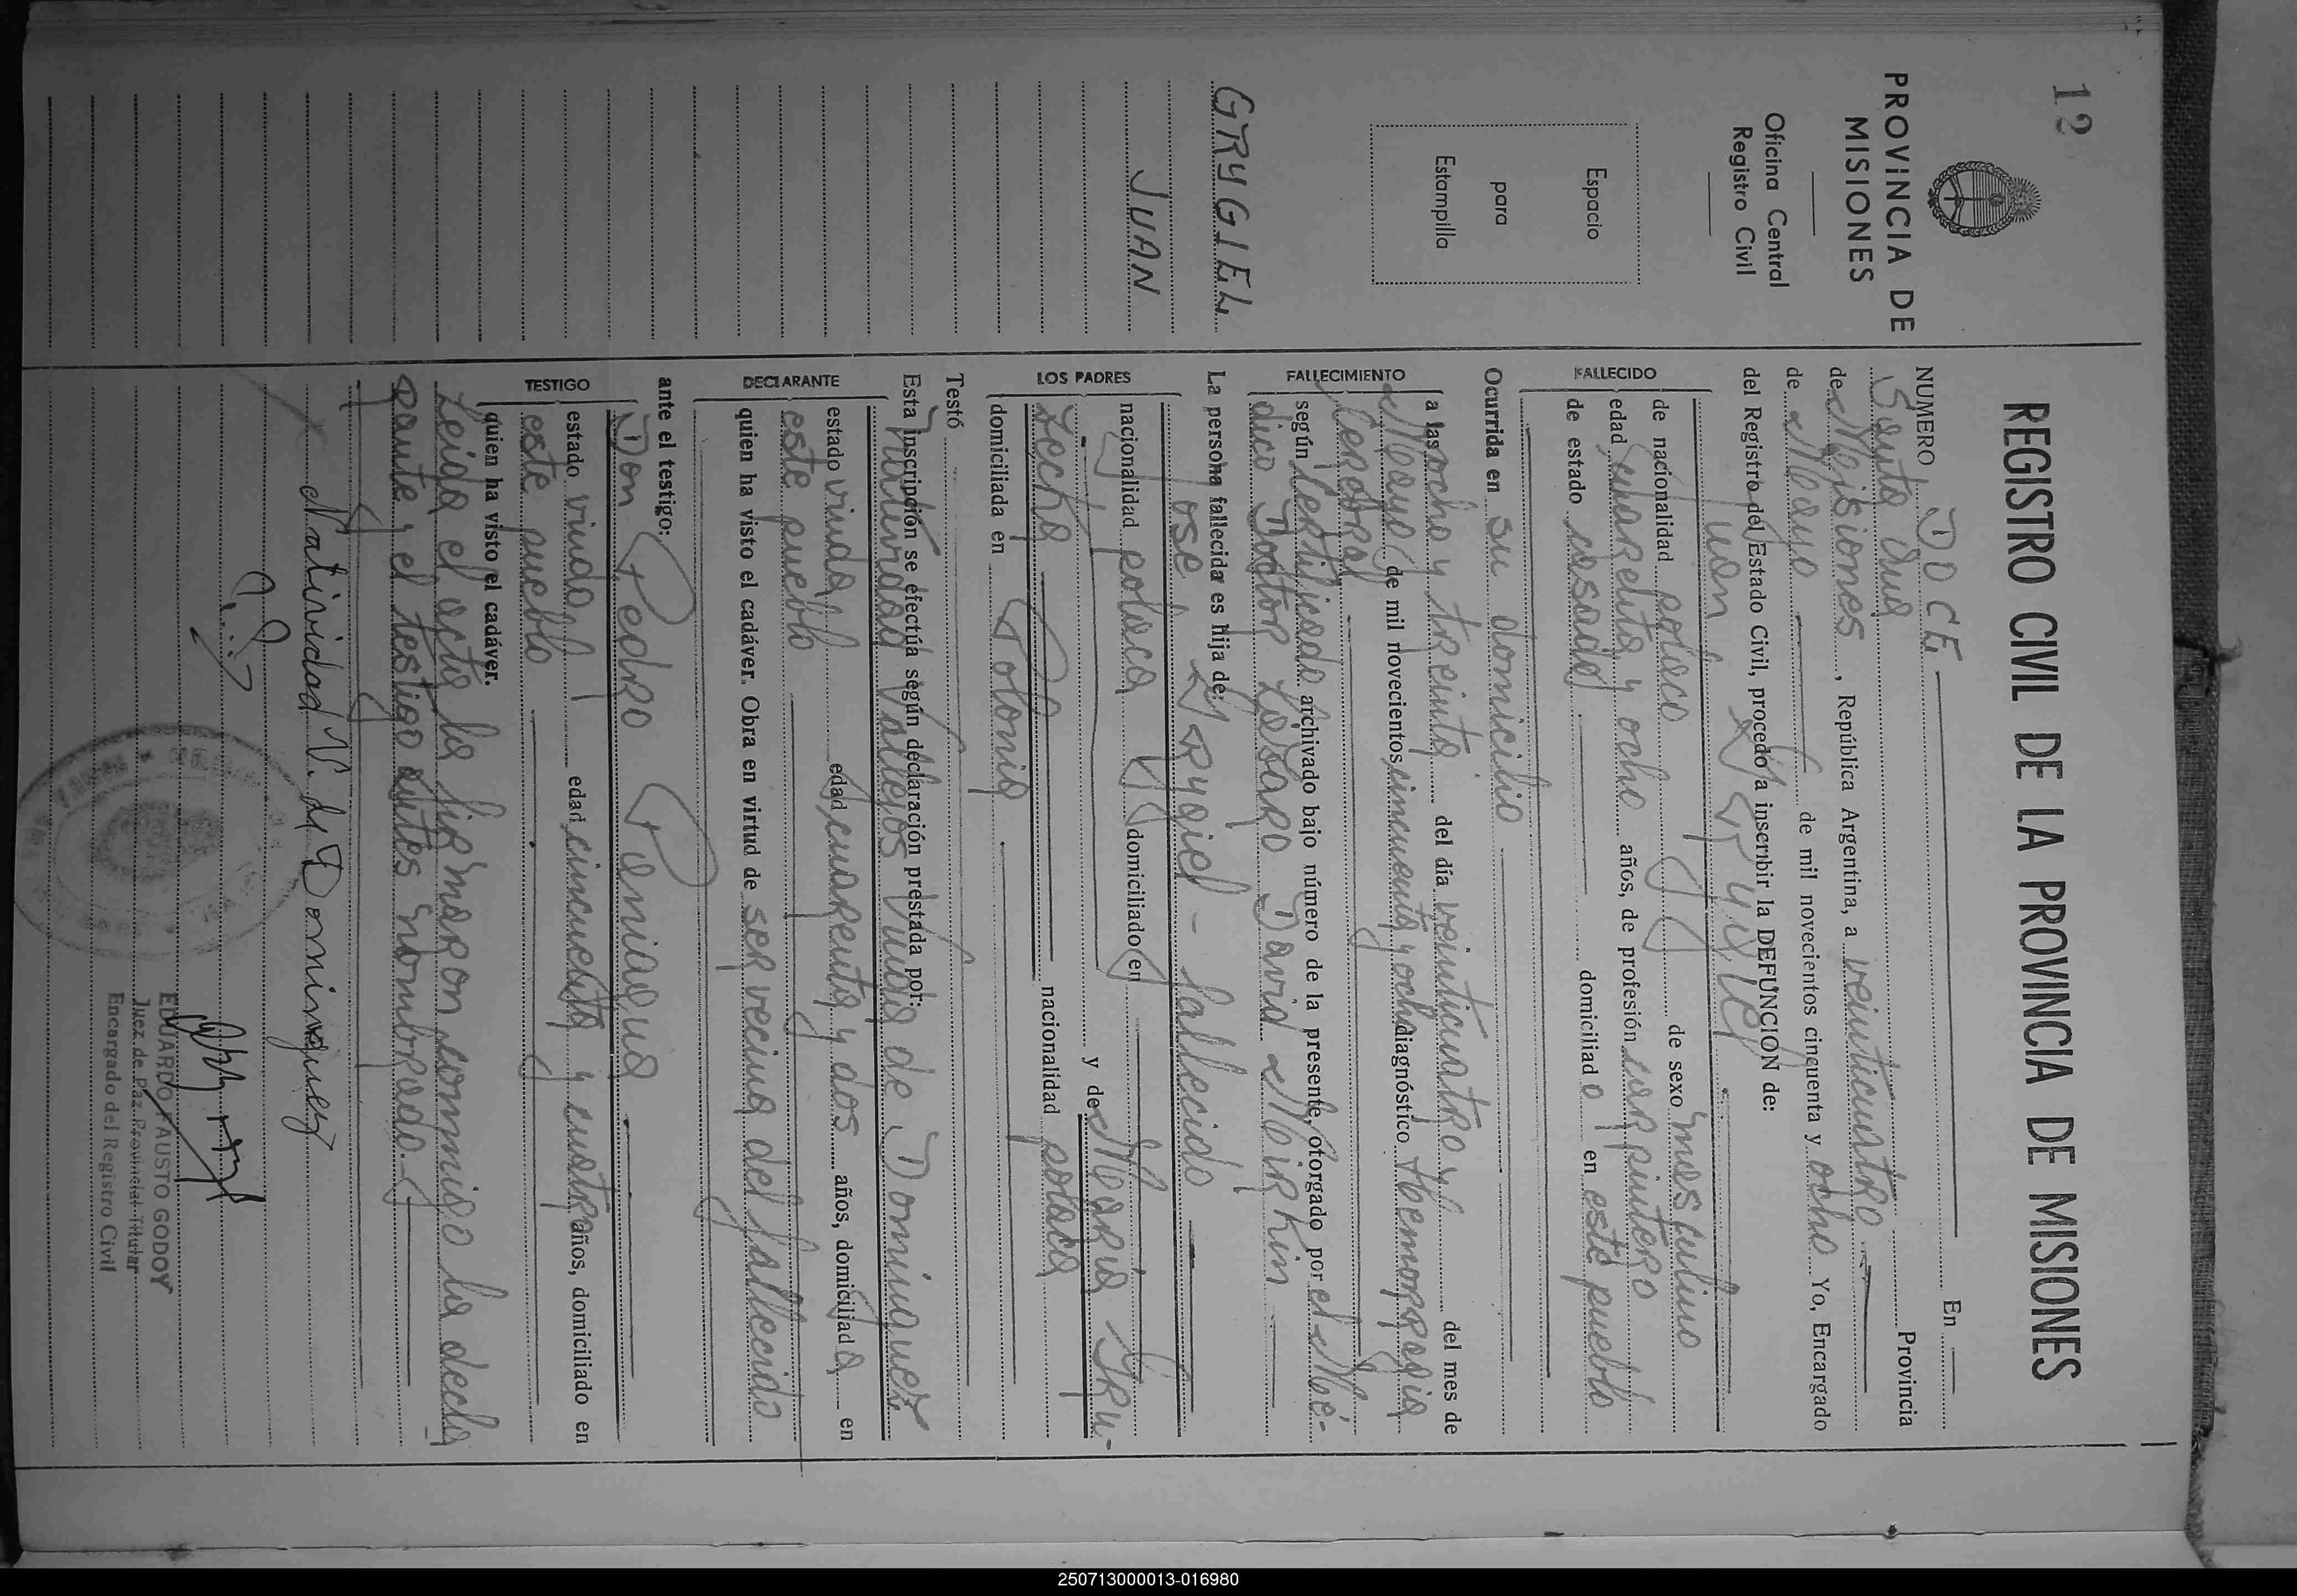 12
PROVINCIA DE
MISIONES
Oficina Central
Registro Civil
Espacio
para
Estampilla
GRYGIEL
JUAN
REGISTRO CIVIL DE LA PROVINCIA DE MISIONES
NUMERO DOCE En
Santa Ana Provincia
de Misiones, República Argentina, a veinticuatro
de Mayo de mil novecientos cincuenta y ocho Yo, Encargado
del Registro del Estado Civil, procedo a inscribir la DEFUNCION de:
Juan Grygiel
FALLECIDO
de nacionalidad polaco de sexo masculino
edad cuarenta y ocho años, de profesión carpintero
de estado casado domiciliado en este pueblo
Ocurrida en su domicilio
FALLECIMIENTO
a las ocho y treinta del día veinticuatro del mes de
Mayo de mil novecientos cincuenta y ocho diagnóstico Hemorragia
Cerebral
según Certificado archivado bajo número de la presente, otorgado por el Mé-
dico Doctor Lázaro David Mirkin
La persona fallecida es hija de:
José Grygiel - fallecido
LOS PADRES
nacionalidad polaca domiciliado en
y de María Gru-
secka nacionalidad polaca
domiciliada en Polonia
Testó
Esta inscripción se efectúa según declaración prestada por:
DECLARANTE
Natividad Vallejos Viuda de Dominguez
estado viuda edad cuarenta y dos años, domiciliada en
este pueblo
quien ha visto el cadáver. Obra en virtud de ser vecina del fallecido
ante el testigo:
TESTIGO
Don Pedro Paniagua
estado viudo edad cincuenta y cuatro años, domiciliado en
este pueblo
quien ha visto el cadáver.
Leida el acta la firmaron conmigo la decla
rante y el testigo antes nombrado.
Natividad V. de Dominguez
EDUARDO FAUSTO GODOY
Juez de Paz Provincial Titular
Encargado del Registro Civil
250713000013-016980